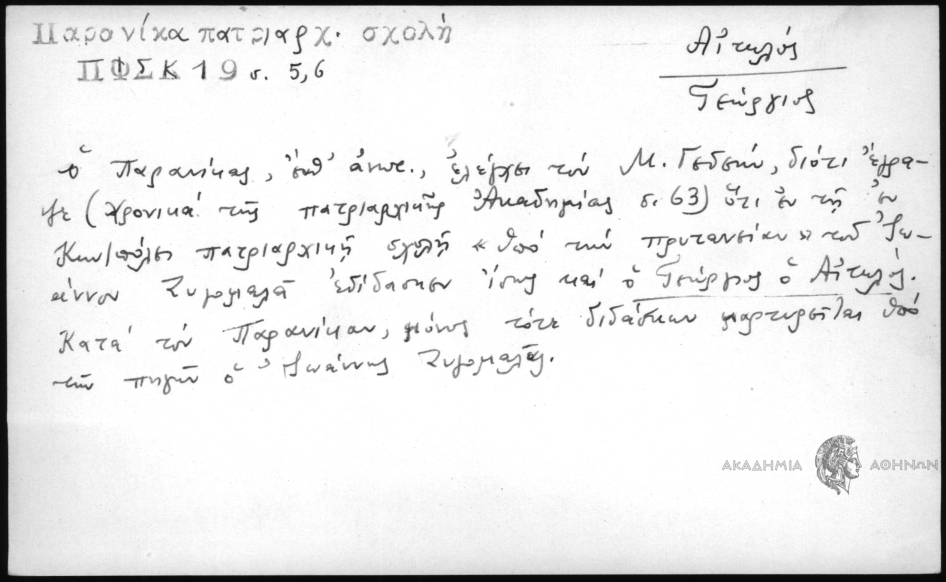 Παρανίκα πατριαρχ. σχολή
ΠΦΣΚ 19 σ. 5,6
Αἰτωλός
Γεώργιος
ὁ Παρανίκας, ἔνθ' ἀνωτ., ἐλέγχει τὸν Μ. Γεδεών, διότι ἔγρα-
ψε (Χρονικά τῆς πατριαρχικῆς Ἀκαδημίας σ. 63) ὅτι ἐν τῇ ἐν
Κων/πόλει πατριαρχικῇ σχολῇ «ὑπό τὴν πρυτανείαν» τοῦ Ἰω-
άννου Ζυγομαλᾶ ἐδίδασκεν ἴσως καί ὁ Γεώργιος ὁ Αἰτωλός.
Κατά τὸν Παρανίκαν, μόνος τότε διδάσκων μαρτυρεῖται ὑπό
τῶν πηγῶν ὁ Ἰωάννης Ζυγομαλᾶς.
ΑΚΑΔΗΜΙΑ ΑΘΗΝΩΝ